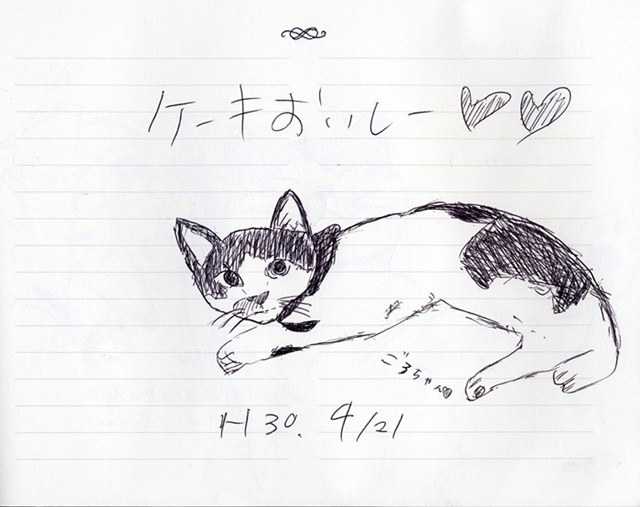 ケーキおいしー♡♡
ごろちゃん♡
H30. 4/21